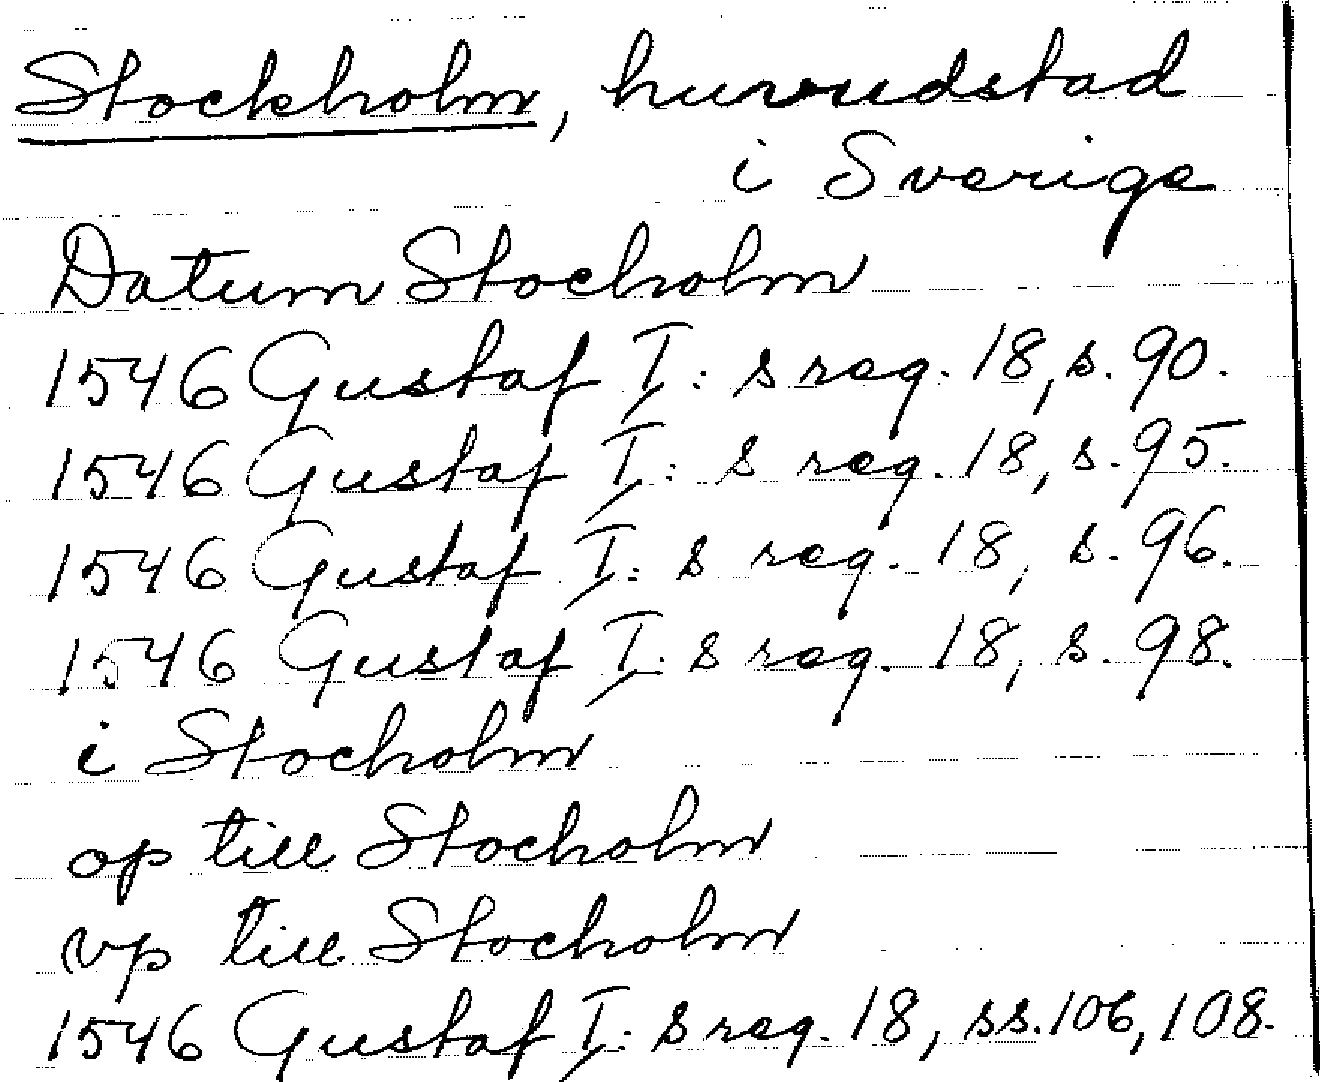 Stockholm, huvudstad
i Sverige
Datum Stocholm
1546 Gustaf I: s reg. 18, s. 90.
1546 Gustaf I: s reg. 18, s. 95.
1546 Gustaf I: s reg. 18, s. 96.
1546 Gustaf I: s reg. 18, s. 98.
i Stocholm
op till Stocholm
vp till Stocholm
1546 Gustaf I: s reg. 18, ss. 106, 108.